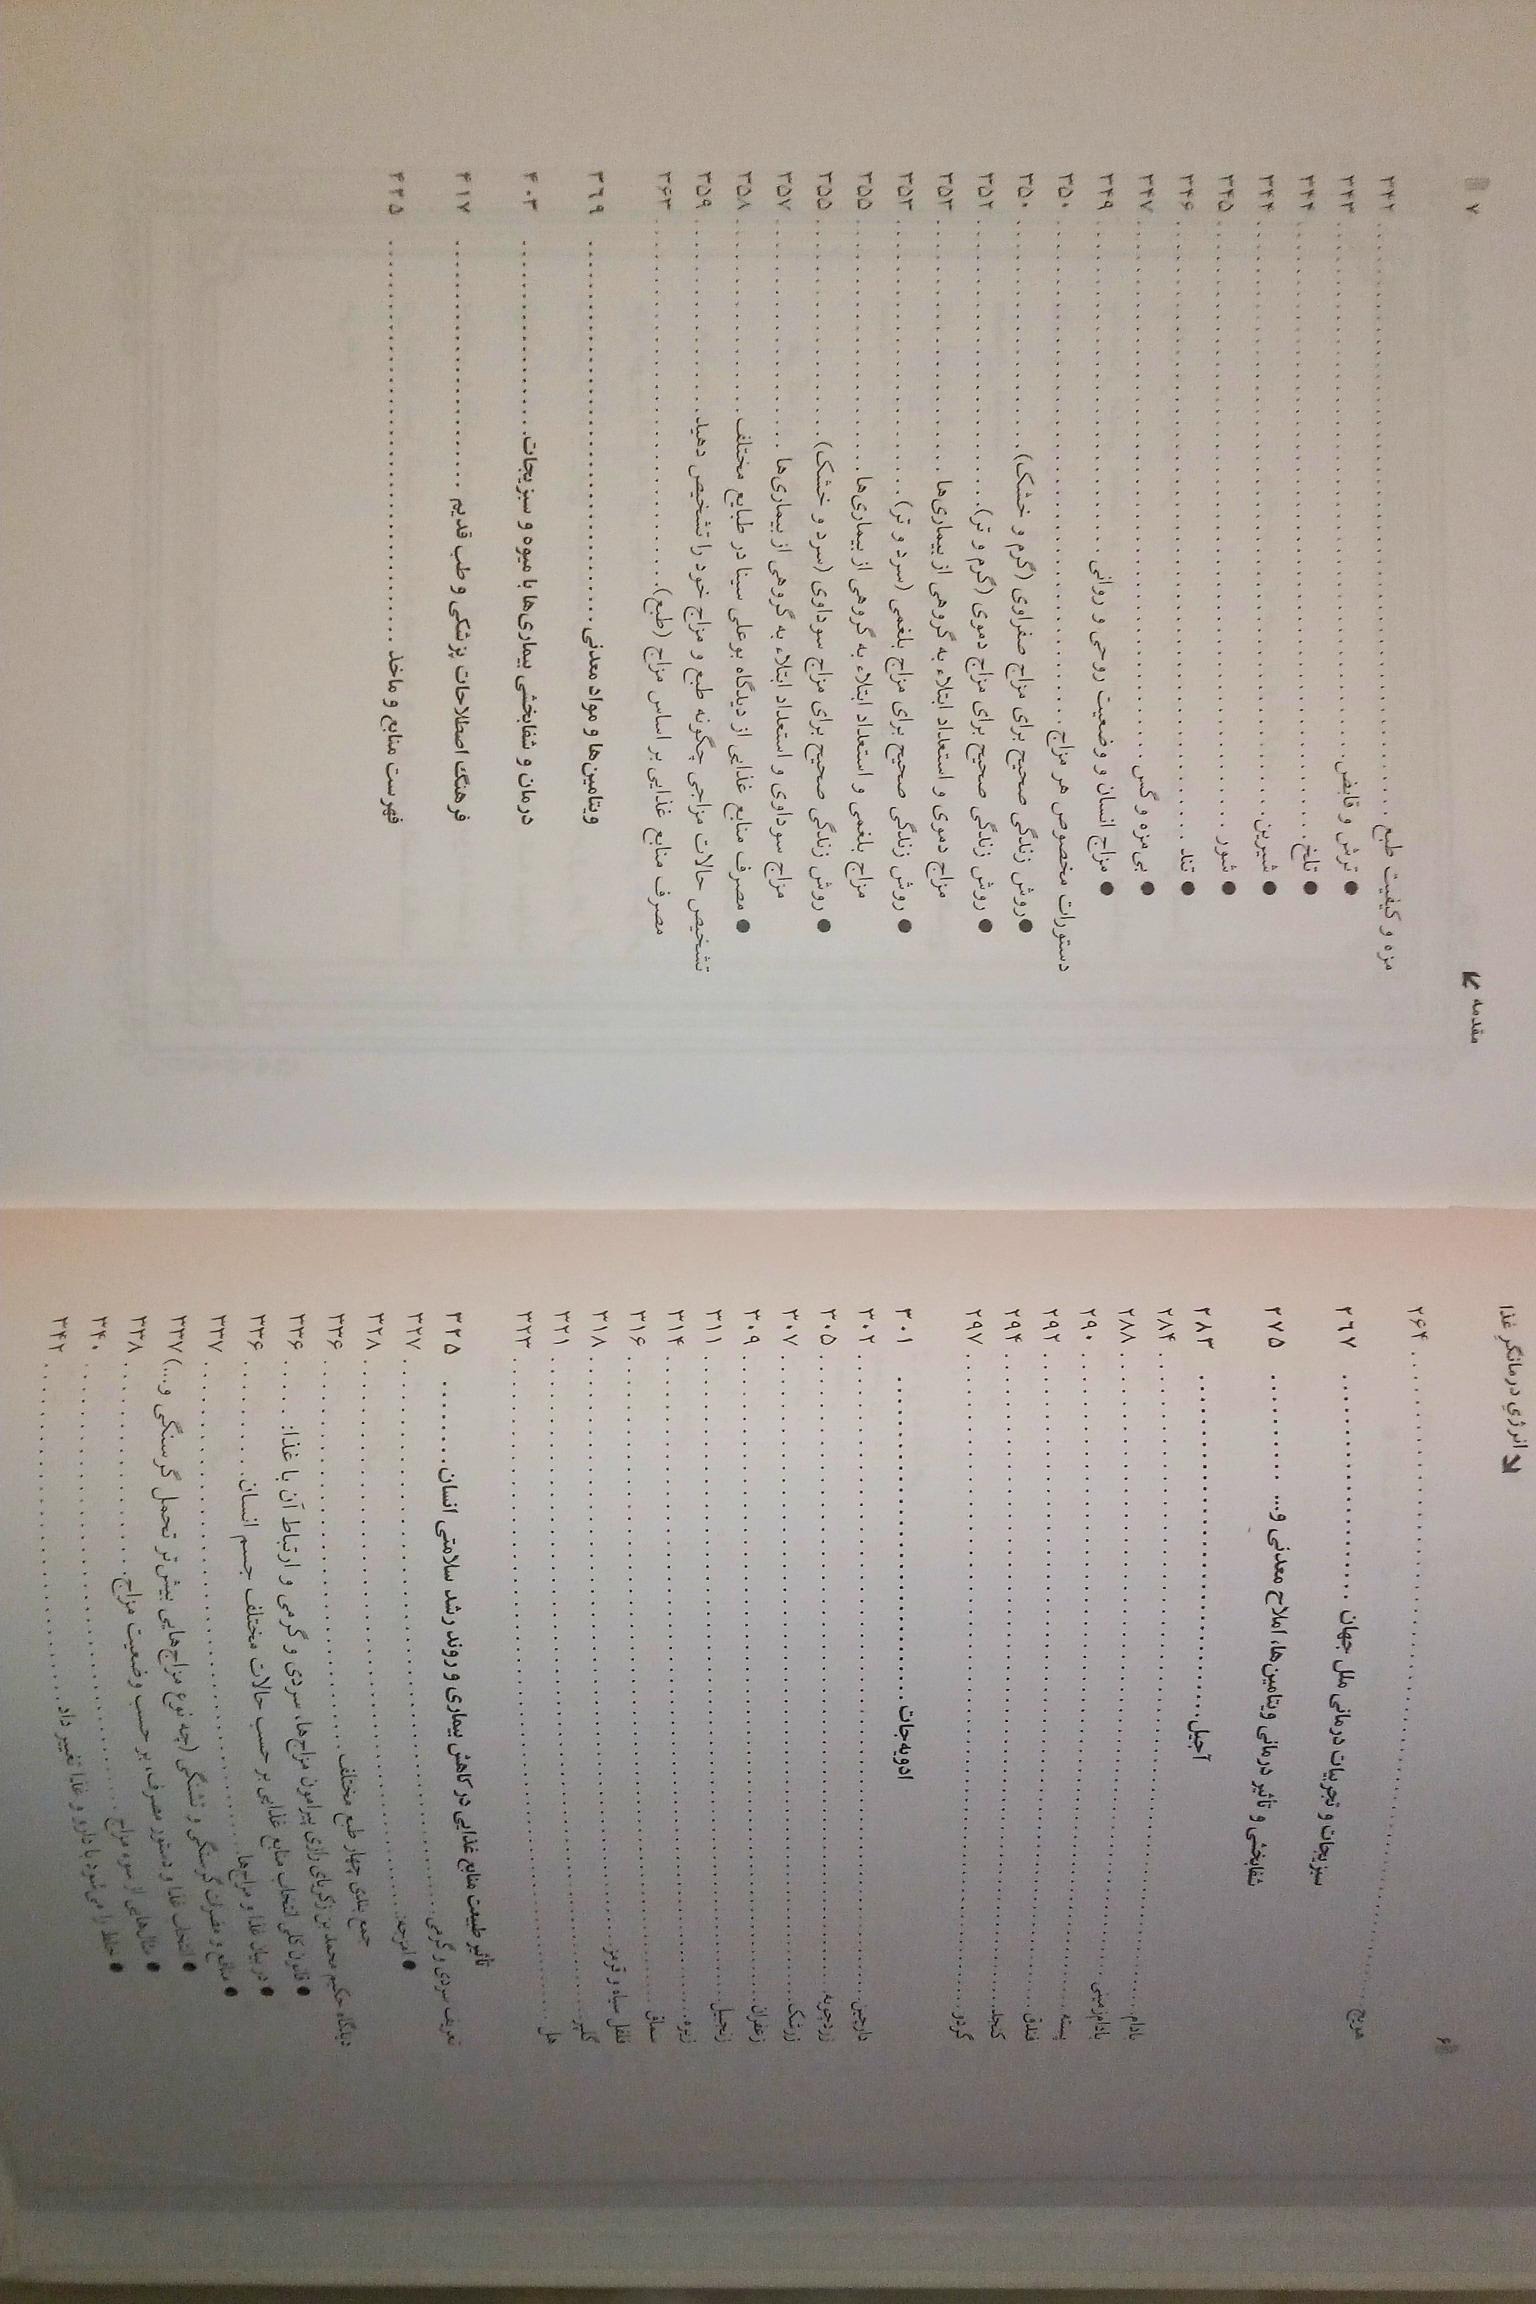 ۶
انرژیِ درمانگرِ غذا
هویج ۲۶۴
سبزیجات و تجربیات درمانی ملل جهان ۲۶۷
شفابخشی و تأثیر درمانی ویتامین‌ها، املاح معدنی و... ۲۷۵
آجیل ۲۸۳
۲۸۴
بادام ۲۸۸
بادام‌زمینی ۲۹۰
پسته ۲۹۲
فندق ۲۹۴
کنجد ۲۹۷
گردو
ادویه‌جات ۳۰۱
دارچین ۳۰۲
زردچوبه ۳۰۵
زرشک ۳۰۷
زعفران ۳۰۹
زنجبیل ۳۱۱
زیره ۳۱۴
سماق ۳۱۶
فلفل سیاه و قرمز ۳۱۸
گلپر ۳۲۱
هل ۳۲۳
تأثیر طبیعت منابع غذایی در کاهش بیماری و روند رشد سلامتی انسان ۳۲۵
تعریف سردی و گرمی ۳۲۷
● امزجه: ۳۲۸
جمع بندی چهار طبع مختلف ۳۳۶
دیدگاه حکیم محمد بن زکریای رازی پیرامون مزاج‌ها، سردی و گرمی و ارتباط آن با غذا: ۳۳۶
● قانون کلی انتخاب منابع غذایی بر حسب حالات مختلف جسم انسان ۳۳۶
● در بیان غذا و مزاج‌ها ۳۳۷
● منافع و مضرات گرسنگی و تشنگی (چه نوع مزاج‌هایی بیش‌تر تحمل گرسنگی و...) ۳۳۷
● انتخاب غذا و دستور مصرف، بر حسب وضعیت مزاج ۳۳۸
● مثال‌هایی از سوء مزاج ۳۴۰
● خلط را می‌شود با دارو و غذا تغییر داد ۳۴۲
مقدمه
۷
مزه و کیفیت طبع ۳۴۲
● ترش و قابض ۳۴۳
● تلخ ۳۴۴
● شیرین ۳۴۴
● شور ۳۴۵
● تند ۳۴۶
● بی‌مزه و گس ۳۴۷
● مزاج انسان و وضعیت روحی و روانی ۳۴۹
دستورات مخصوص هر مزاج ۳۵۰
● روش زندگی صحیح برای مزاج صفراوی (گرم و خشک) ۳۵۰
● روش زندگی صحیح برای مزاج دموی (گرم و تر) ۳۵۲
مزاج دموی و استعداد ابتلاء به گروهی از بیماری‌ها ۳۵۳
● روش زندگی صحیح برای مزاج بلغمی (سرد و تر) ۳۵۳
مزاج بلغمی و استعداد ابتلاء به گروهی از بیماری‌ها ۳۵۵
● روش زندگی صحیح برای مزاج سوداوی (سرد و خشک) ۳۵۵
مزاج سوداوی و استعداد ابتلاء به گروهی از بیماری‌ها ۳۵۷
● مصرف منابع غذایی از دیدگاه بوعلی سینا در طبایع مختلف ۳۵۸
تشخیص حالات مزاجی چگونه طبع و مزاج خود را تشخیص دهید ۳۵۹
مصرف منابع غذایی بر اساس مزاج (طبع) ۳۶۳
ویتامین‌ها و مواد معدنی ۳۶۹
درمان و شفابخشی بیماری‌ها با میوه و سبزیجات ۴۰۳
فرهنگ اصطلاحات پزشکی و طب قدیم ۴۱۷
فهرست منابع و ماخذ ۴۳۵